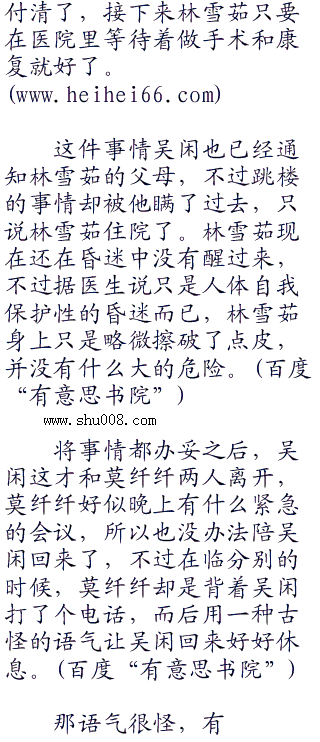 付清了，接下来林雪茹只要
在医院里等待着做手术和康
复就好了。
(www.heihei66.com)
这件事情吴闲也已经通
知林雪茹的父母，不过跳楼
的事情却被他瞒了过去，只
说林雪茹住院了。林雪茹现
在还在昏迷中没有醒过来，
不过据医生说只是人体自我
保护性的昏迷而已，林雪茹
身上只是略微擦破了点皮，
并没有什么大的危险。(百度
“有意思书院”)
www.shu008.com
将事情都办妥之后，吴
闲这才和莫纤纤两人离开，
莫纤纤好似晚上有什么紧急
的会议，所以也没办法陪吴
闲回来了，不过在临分别的
时候，莫纤纤却是背着吴闲
打了个电话，而后用一种古
怪的语气让吴闲回来好好休
息。(百度“有意思书院”)
那语气很怪，有